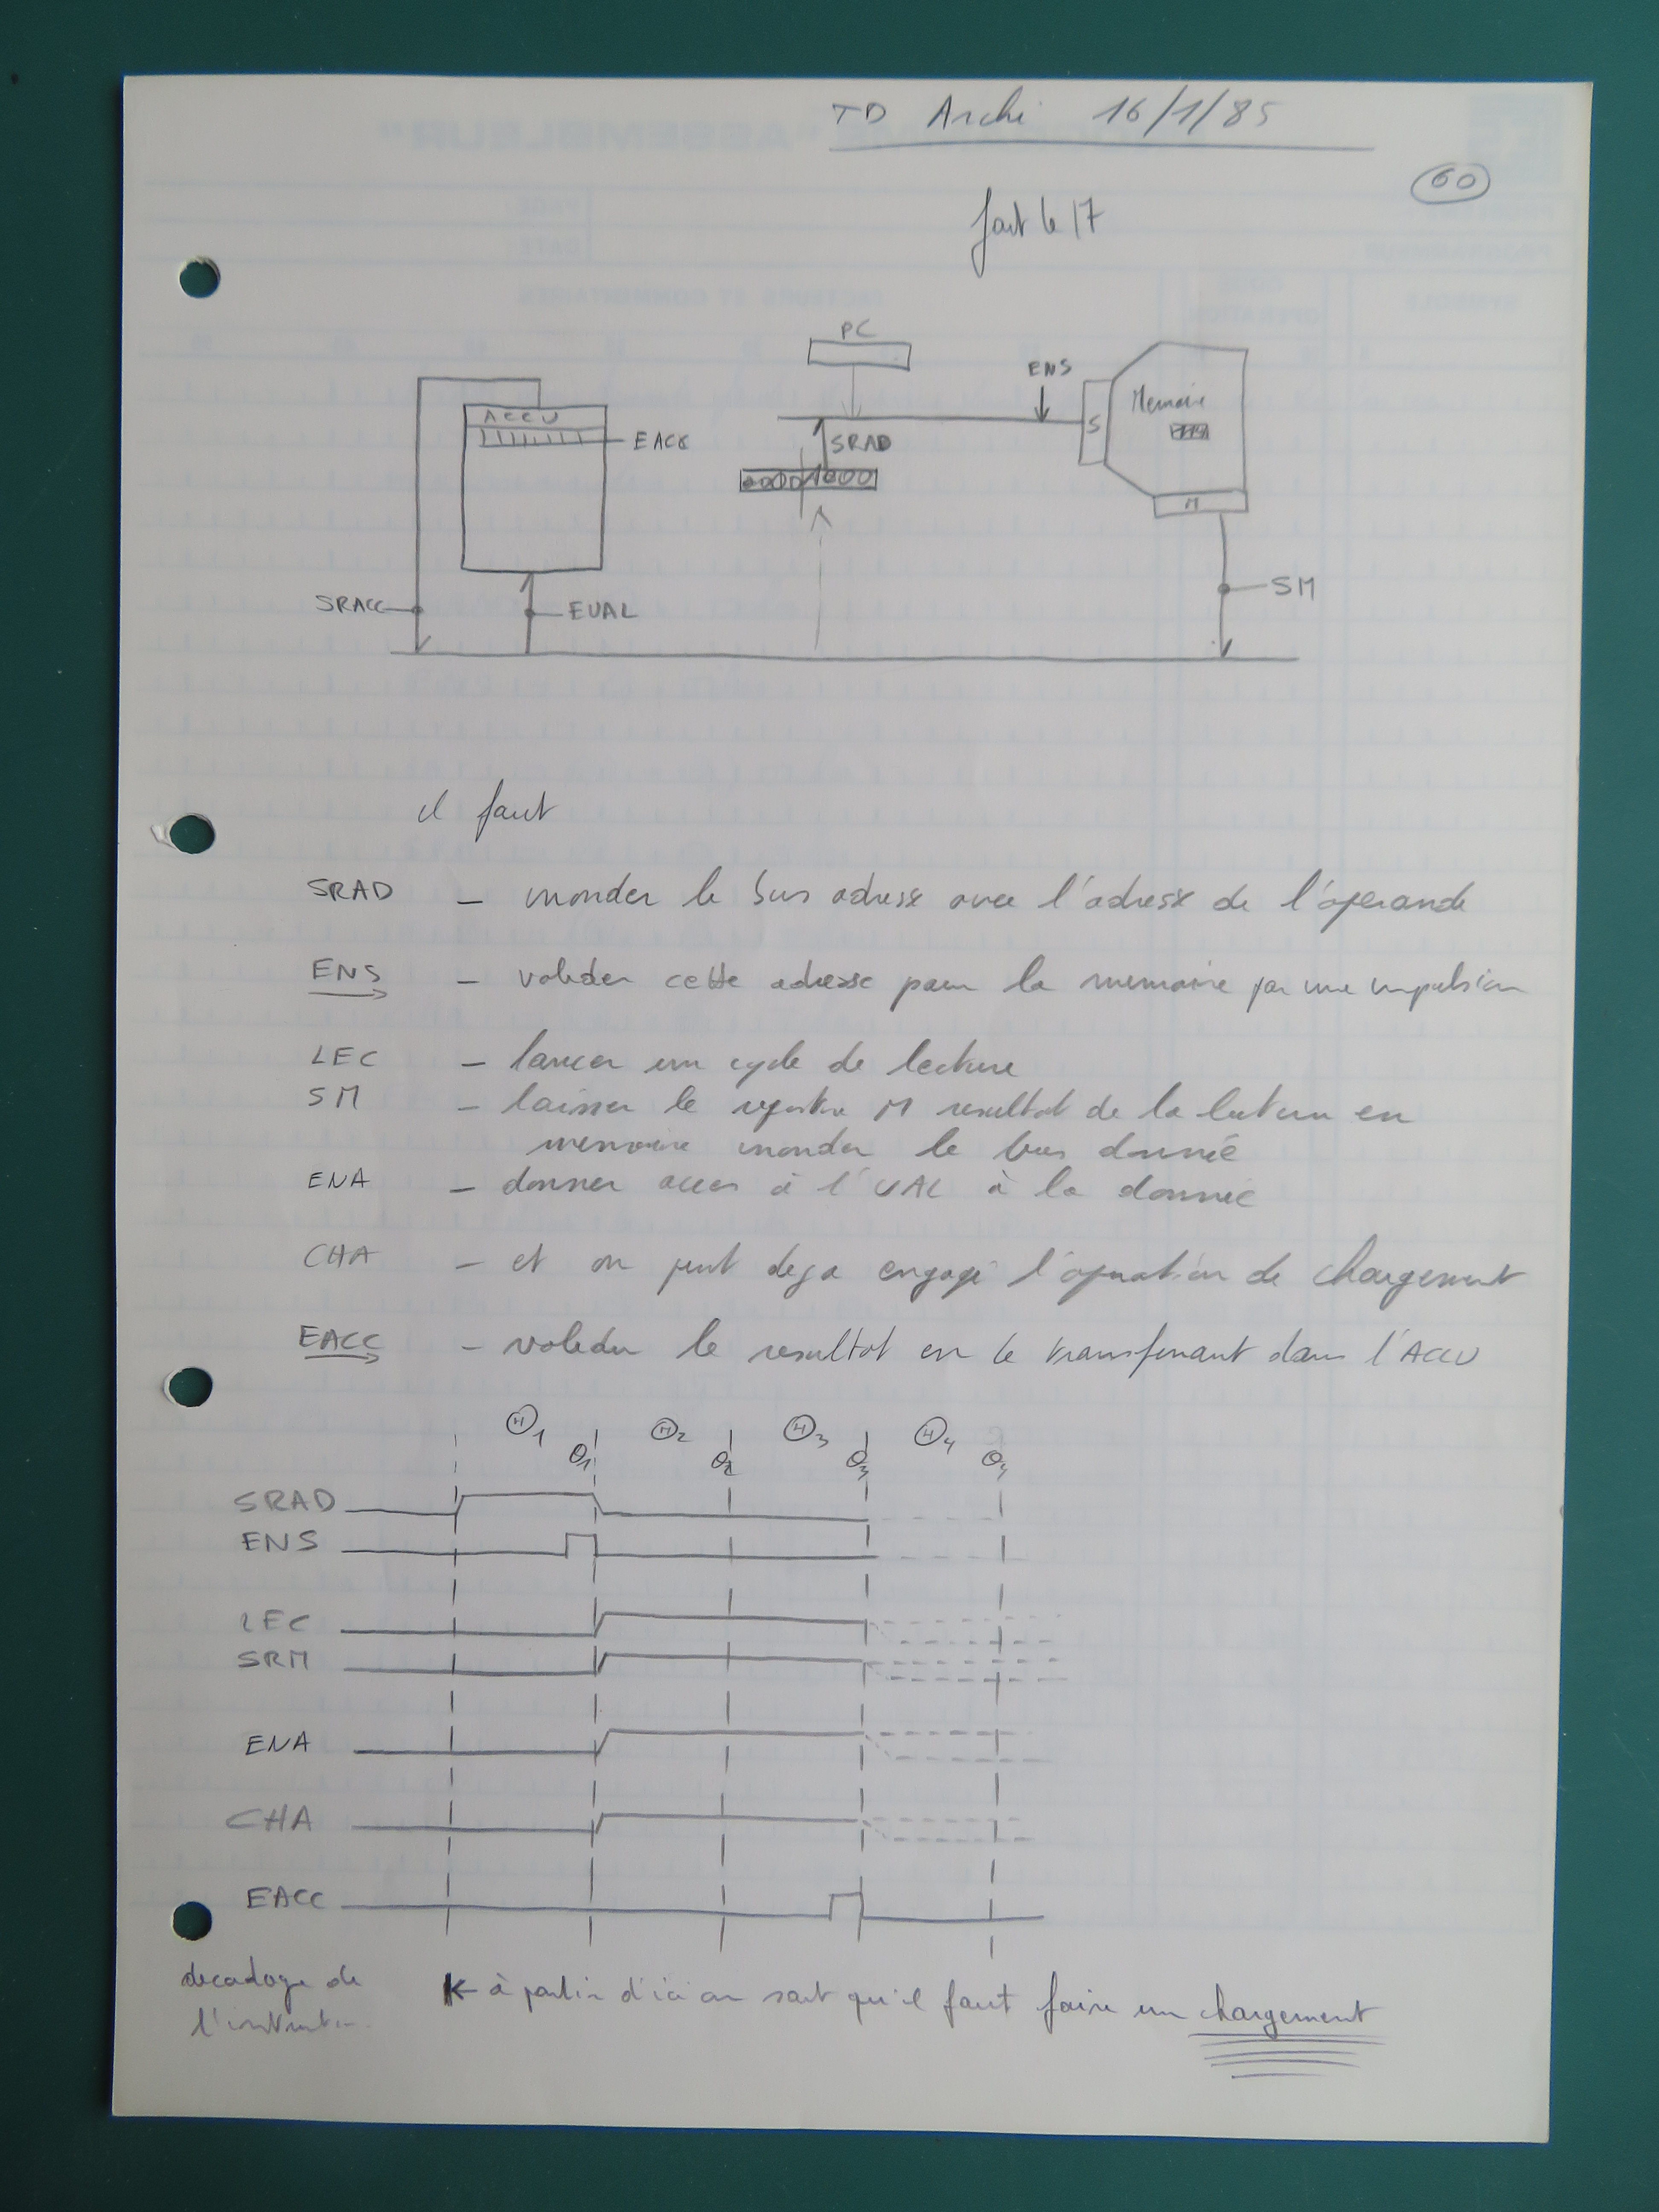 TD Archi 16/1/85
60
fait le 17
PC
ENS
ACCU
EACC
SRAD
S
Memoire
M
SRACC
EUAL
SM
il faut
SRAD - inonder le bus adresse avec l'adresse de l'operande
ENS - valider cette adresse pour la memoire par une impulsion
LEC - lancer un cycle de lecture
SM - laisser le registre M resultat de la lecture en
memoire inonder le bus donnée
ENA - donner acces à l'UAL à la donnée
CHA - et on peut deja engagé l'operation de chargement
EACC - valider le resultat en le transferant dans l'ACCU
Θ1 Θ2 Θ3 Θ4
θ1 θ2 θ3 θ4
SRAD
ENS
LEC
SRM
ENA
CHA
EACC
decodage de
l'instruction
à partir d'ici on sait qu'il faut faire un chargement